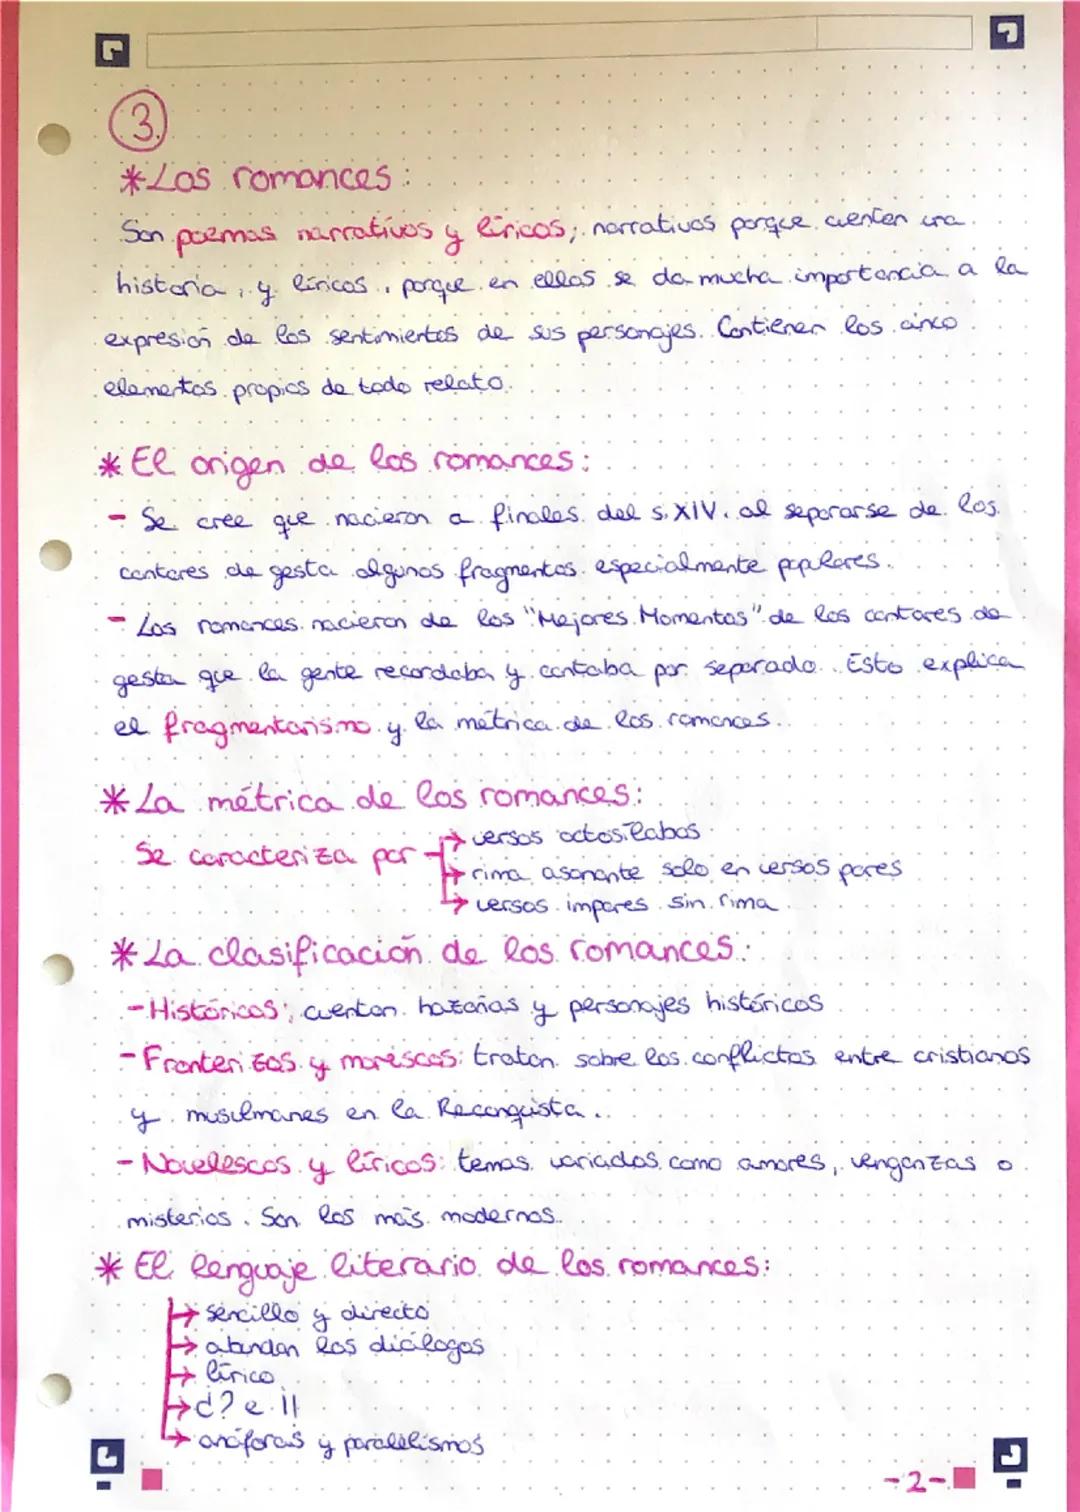 3.
*Los romances:
Son poemas narrativos y líricos; narrativos porque cuentan una
historia, y líricos, porque en ellos se da mucha importancia a la
expresión de los sentimientos de sus personajes. Contienen los cinco
elementos propios de todo relato.
* El origen de los romances:
- Se cree que nacieron a finales del s.XIV. al separarse de los
cantares de gesta algunos fragmentos especialmente populares.
- Los romances nacieron de los "Mejores Momentos" de los cantares de
gesta que la gente recordaba y cantaba por separado. Esto explica
el fragmentarismo y la métrica de los romances.
* La métrica de los romances:
Se caracteriza por
→ versos octosílabos
→ rima asonante solo en versos pares
→ versos impares sin rima
* La clasificación de los romances:
- Históricos; cuentan hazañas y personajes históricos
- Fronterizos y moriscos: tratan sobre los conflictos entre cristianos
y musulmanes en la Reconquista.
- Novelescos y líricos: temas variados como amores, venganzas o
misterios. Son los más modernos.
* El lenguaje literario de los romances:
→ sencillo y directo
→ abundan los diálogos
→ lírico
→ ¿? e ¡!
→ anáforas y paralelismos
-2-